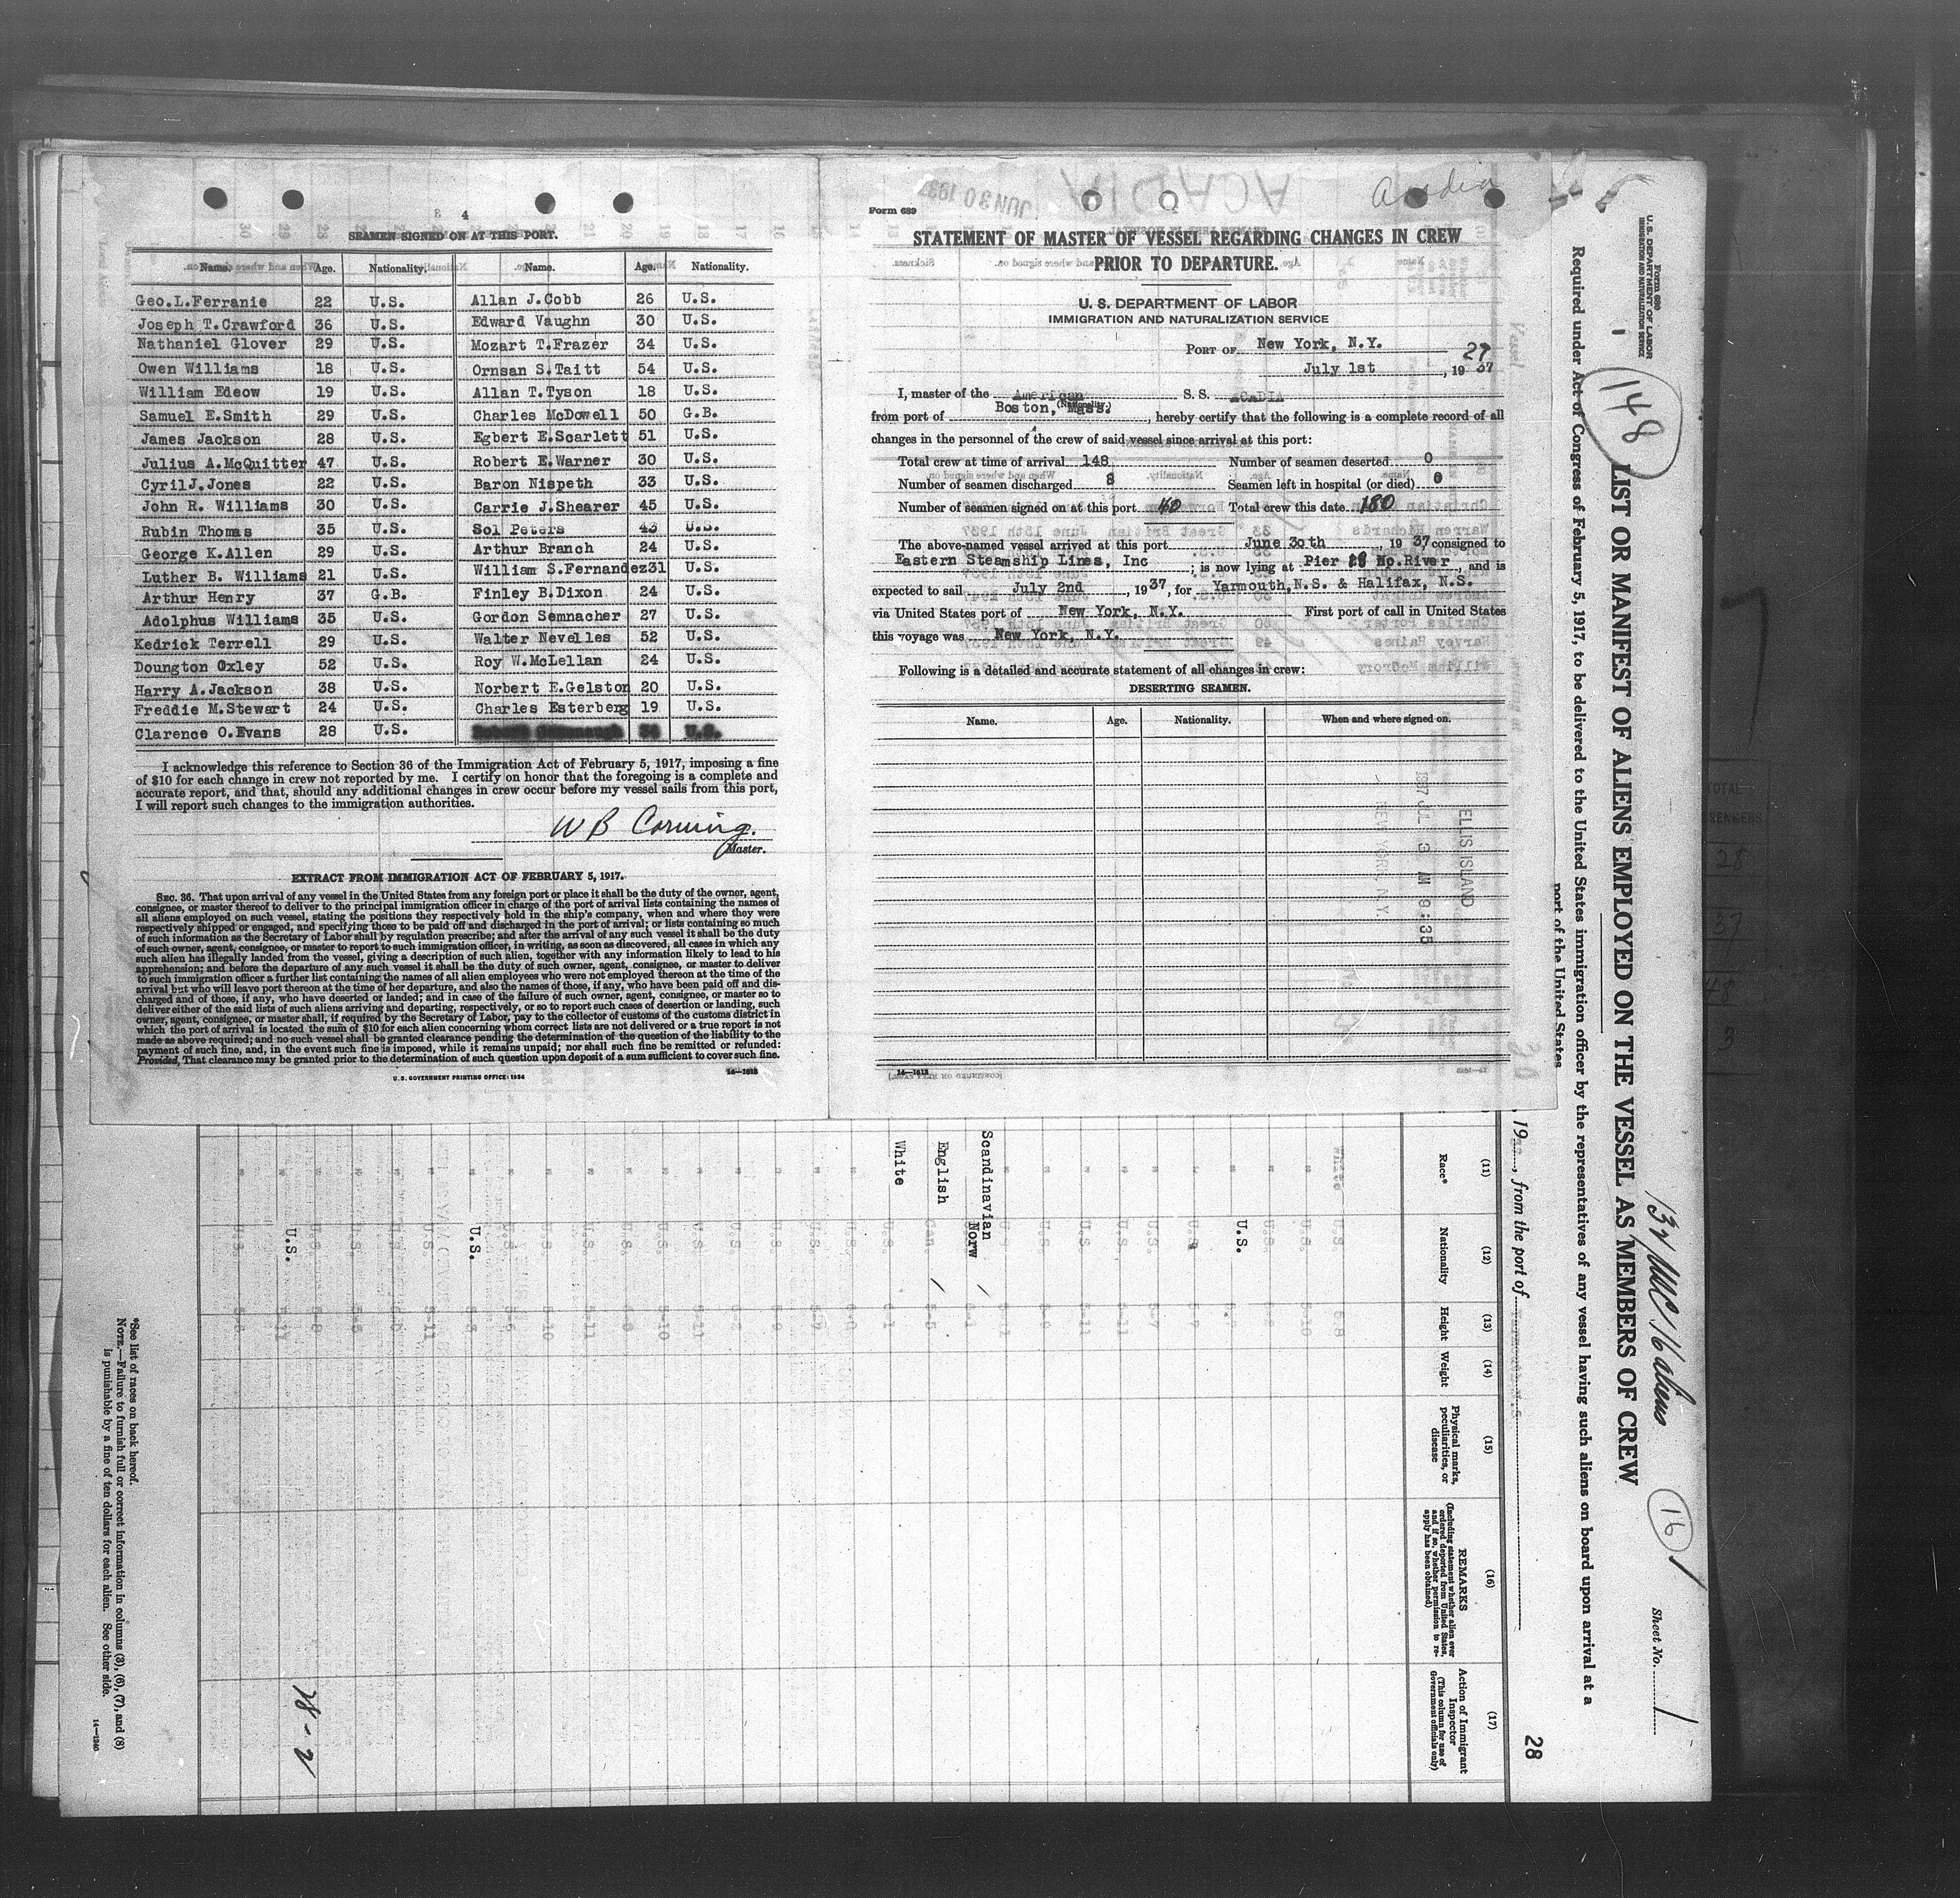 4
SEAMEN SIGNED ON AT THIS PORT.
Name. Age. Nationality. Name. Age. Nationality.
Geo.L.Ferranie 22 U.S. Allan J.Cobb 26 U.S.
Joseph T.Crawford 36 U.S. Edward Vaughn 30 U.S.
Nathaniel Glover 29 U.S. Mozart T.Frazer 34 U.S.
Owen Williams 18 U.S. Ornsan S.Taitt 54 U.S.
William Edeow 19 U.S. Allan T.Tyson 18 U.S.
Samuel E.Smith 29 U.S. Charles McDowell 50 G.B.
James Jackson 28 U.S. Egbert E.Scarlett 51 U.S.
Julius A.McQuitter 47 U.S. Robert E.Warner 30 U.S.
Cyril J.Jones 22 U.S. Baron Nispeth 33 U.S.
John R. Williams 30 U.S. Carrie J.Shearer 45 U.S.
Rubin Thomas 35 U.S. Sol Peters 43 U.S.
George K.Allen 29 U.S. Arthur Branch 24 U.S.
Luther B. Williams 21 U.S. William S.Fernandez 31 U.S.
Arthur Henry 37 G.B. Finley B.Dixon 24 U.S.
Adolphus Williams 35 U.S. Gordon Semnacher 27 U.S.
Kedrick Terrell 29 U.S. Walter Nevelles 52 U.S.
Doungton Oxley 52 U.S. Roy W.McLellan 24 U.S.
Harry A.Jackson 38 U.S. Norbert E.Gelston 20 U.S.
Freddie M.Stewart 24 U.S. Charles Esterberg 19 U.S.
Clarence O.Evans 28 U.S. U.S.
I acknowledge this reference to Section 36 of the Immigration Act of February 5, 1917, imposing a fine
of $10 for each change in crew not reported by me. I certify on honor that the foregoing is a complete and
accurate report, and that, should any additional changes in crew occur before my vessel sails from this port,
I will report such changes to the immigration authorities.
W B Corning.
Master.
EXTRACT FROM IMMIGRATION ACT OF FEBRUARY 5, 1917.
SEC. 36. That upon arrival of any vessel in the United States from any foreign port or place it shall be the duty of the owner, agent,
consignee, or master thereof to deliver to the principal immigration officer in charge of the port of arrival lists containing the names of
all aliens employed on such vessel, stating the positions they respectively hold in the ship's company, when and where they were
respectively shipped or engaged, and specifying those to be paid off and discharged in the port of arrival; or lists containing so much
of such information as the Secretary of Labor shall by regulation prescribe; and after the arrival of any such vessel it shall be the duty
of such owner, agent, consignee, or master to report to such immigration officer, in writing, as soon as discovered, all cases in which any
such alien has illegally landed from the vessel, giving a description of such alien, together with any information likely to lead to his
apprehension; and before the departure of any such vessel it shall be the duty of such owner, agent, consignee, or master to deliver
to such immigration officer a further list containing the names of all alien employees who were not employed thereon at the time of the
arrival but who will leave port thereon at the time of her departure, and also the names of those, if any, who have been paid off and dis-
charged and of those, if any, who have deserted or landed; and in case of the failure of such owner, agent, consignee, or master so to
deliver either of the said lists of such aliens arriving and departing, respectively, or so to report such cases of desertion or landing, such
owner, agent, consignee, or master shall, if required by the Secretary of Labor, pay to the collector of customs of the customs district in
which the port of arrival is located the sum of $10 for each alien concerning whom correct lists are not delivered or a true report is not
made as above required; and no such vessel shall be granted clearance pending the determination of the question of the liability to the
payment of such fine, and, in the event such fine is imposed, while it remains unpaid; nor shall such fine be remitted or refunded:
Provided, That clearance may be granted prior to the determination of such question upon deposit of a sum sufficient to cover such fine.
U.S. GOVERNMENT PRINTING OFFICE: 1934 14—1613
Acadia
Form 689
STATEMENT OF MASTER OF VESSEL REGARDING CHANGES IN CREW
PRIOR TO DEPARTURE.
U. S. DEPARTMENT OF LABOR
IMMIGRATION AND NATURALIZATION SERVICE
PORT OF New York, N.Y. 27
July 1st, 1937
I, master of the American S. S. ACADIA
(Nationality.)
from port of Boston, Mass., hereby certify that the following is a complete record of all
changes in the personnel of the crew of said vessel since arrival at this port:
Total crew at time of arrival 148 Number of seamen deserted 0
Number of seamen discharged 8 Seamen left in hospital (or died) 0
Number of seamen signed on at this port 40 Total crew this date 180
The above-named vessel arrived at this port June 30th, 1937 consigned to
Eastern Steamship Lines, Inc; is now lying at Pier No.River, and is
expected to sail July 2nd, 1937, for Yarmouth,N.S. & Halifax, N.S.
via United States port of New York, N.Y. First port of call in United States
this voyage was New York, N.Y.
Following is a detailed and accurate statement of all changes in crew:
DESERTING SEAMEN.
Name. Age. Nationality. When and where signed on.
ELLIS ISLAND
1937 JUL 3 AM 9:35
NEW YORK, N.Y.
14—1613
Form 680
U.S. DEPARTMENT OF LABOR
IMMIGRATION AND NATURALIZATION SERVICE
148
LIST OR MANIFEST OF ALIENS EMPLOYED ON THE VESSEL AS MEMBERS OF CREW
Required under Act of Congress of February 5, 1917, to be delivered to the United States immigration officer by the representatives of any vessel having such aliens on board upon arrival at a
port of the United States
132 USC 16 aliens
16
Sheet No. 1
28
, 19 , from the port of
(11) (12) (13) (14) (15) (16) (17)
Race* Nationality Height Weight
Physical marks, peculiarities, or disease
REMARKS
(Including statement whether alien ever ordered deported from United States, and if so, whether permission to re-apply has been obtained)
Action of Immigrant Inspector
(This column for use of Government officials only)
U.S.
Scandinavian Norw
English
White
U.S.
U.S.
28-2
*See list of races on back hereof.
NOTE.—Failure to furnish full or correct information in columns (3), (6), (7), and (8)
is punishable by a fine of ten dollars for each alien. See other side.
14—1240